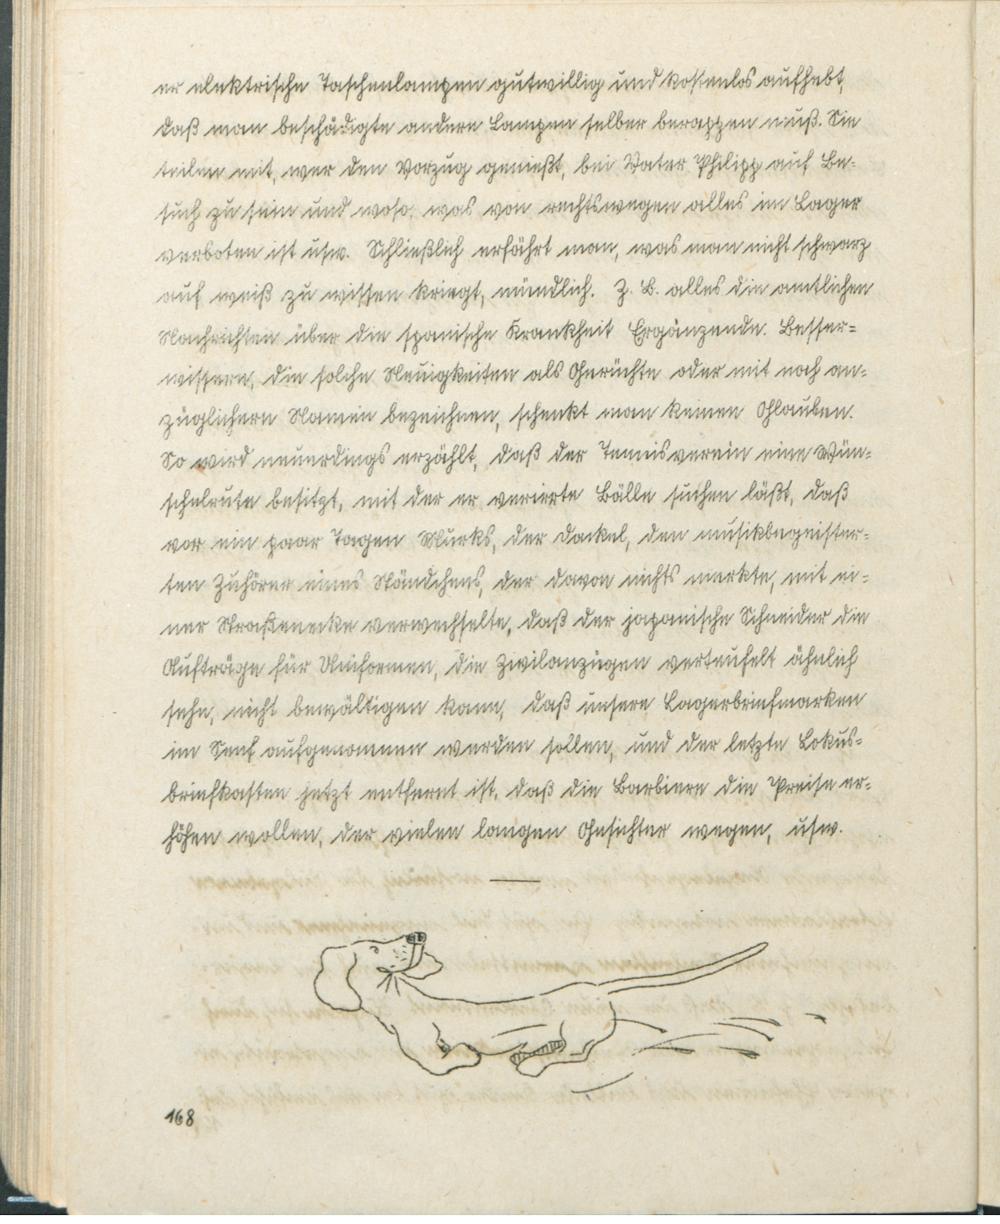 er elektrische Taschenlampen gutwillig und kostenlos aufhebt,
daß man beschädigte andere Lampen selber berappen muß. Sie
teilen mit, wer den Vorzug genießt, bei Vater Philipp auf Be-
such zu sein und wofo, was von rechtswegen alles im Lager
verboten ist usw. Schließlich erfährt man, was man nicht schwarz
auf weiß zu wissen kriegt, mündlich. Z. B. alles die amtlichen
Nachrichten über die spanische Krankheit Ergänzende. Besser-
wissern, die solche Neuigkeiten als Gerüchte oder mit noch an-
züglichern Namen bezeichnen, schenkt man keinen Glauben.
So wird neuerdings erzählt, daß der Tennisverein eine Wün-
schelrute besitzt, mit der er verirrte Bälle suchen läßt, daß
vor ein paar Tagen Murks, der Dackel, den musikbegeister-
ten Zuhörer eines Ständchens, der davon nichts merkte, mit ei-
ner Straßenecke verwechselte, daß der japanische Schneider die
Aufträge für Uniformen, die Zivilanzügen verteufelt ähnlich
sehn, nicht bewältigen kann, daß unsere Lagerbriefmarken
im Senf aufgenommen werden sollen, und der letzte Lokus-
briefkasten jetzt entfernt ist, daß die Barbiere die Preise er-
höhen wollen, der vielen langen Gesichter wegen, usw.
168